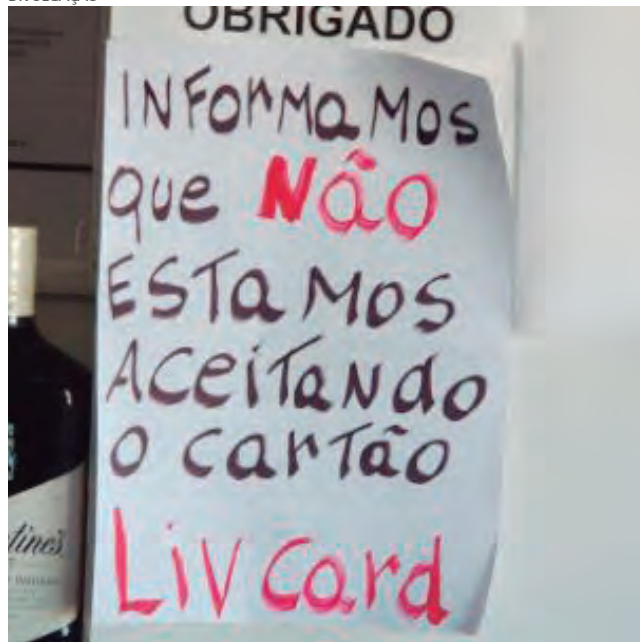 OBRIGADO
INFORMAMOS
que NÃO
ESTAMOS
ACEITANDO
O CARTÃO
LIV Card
tines